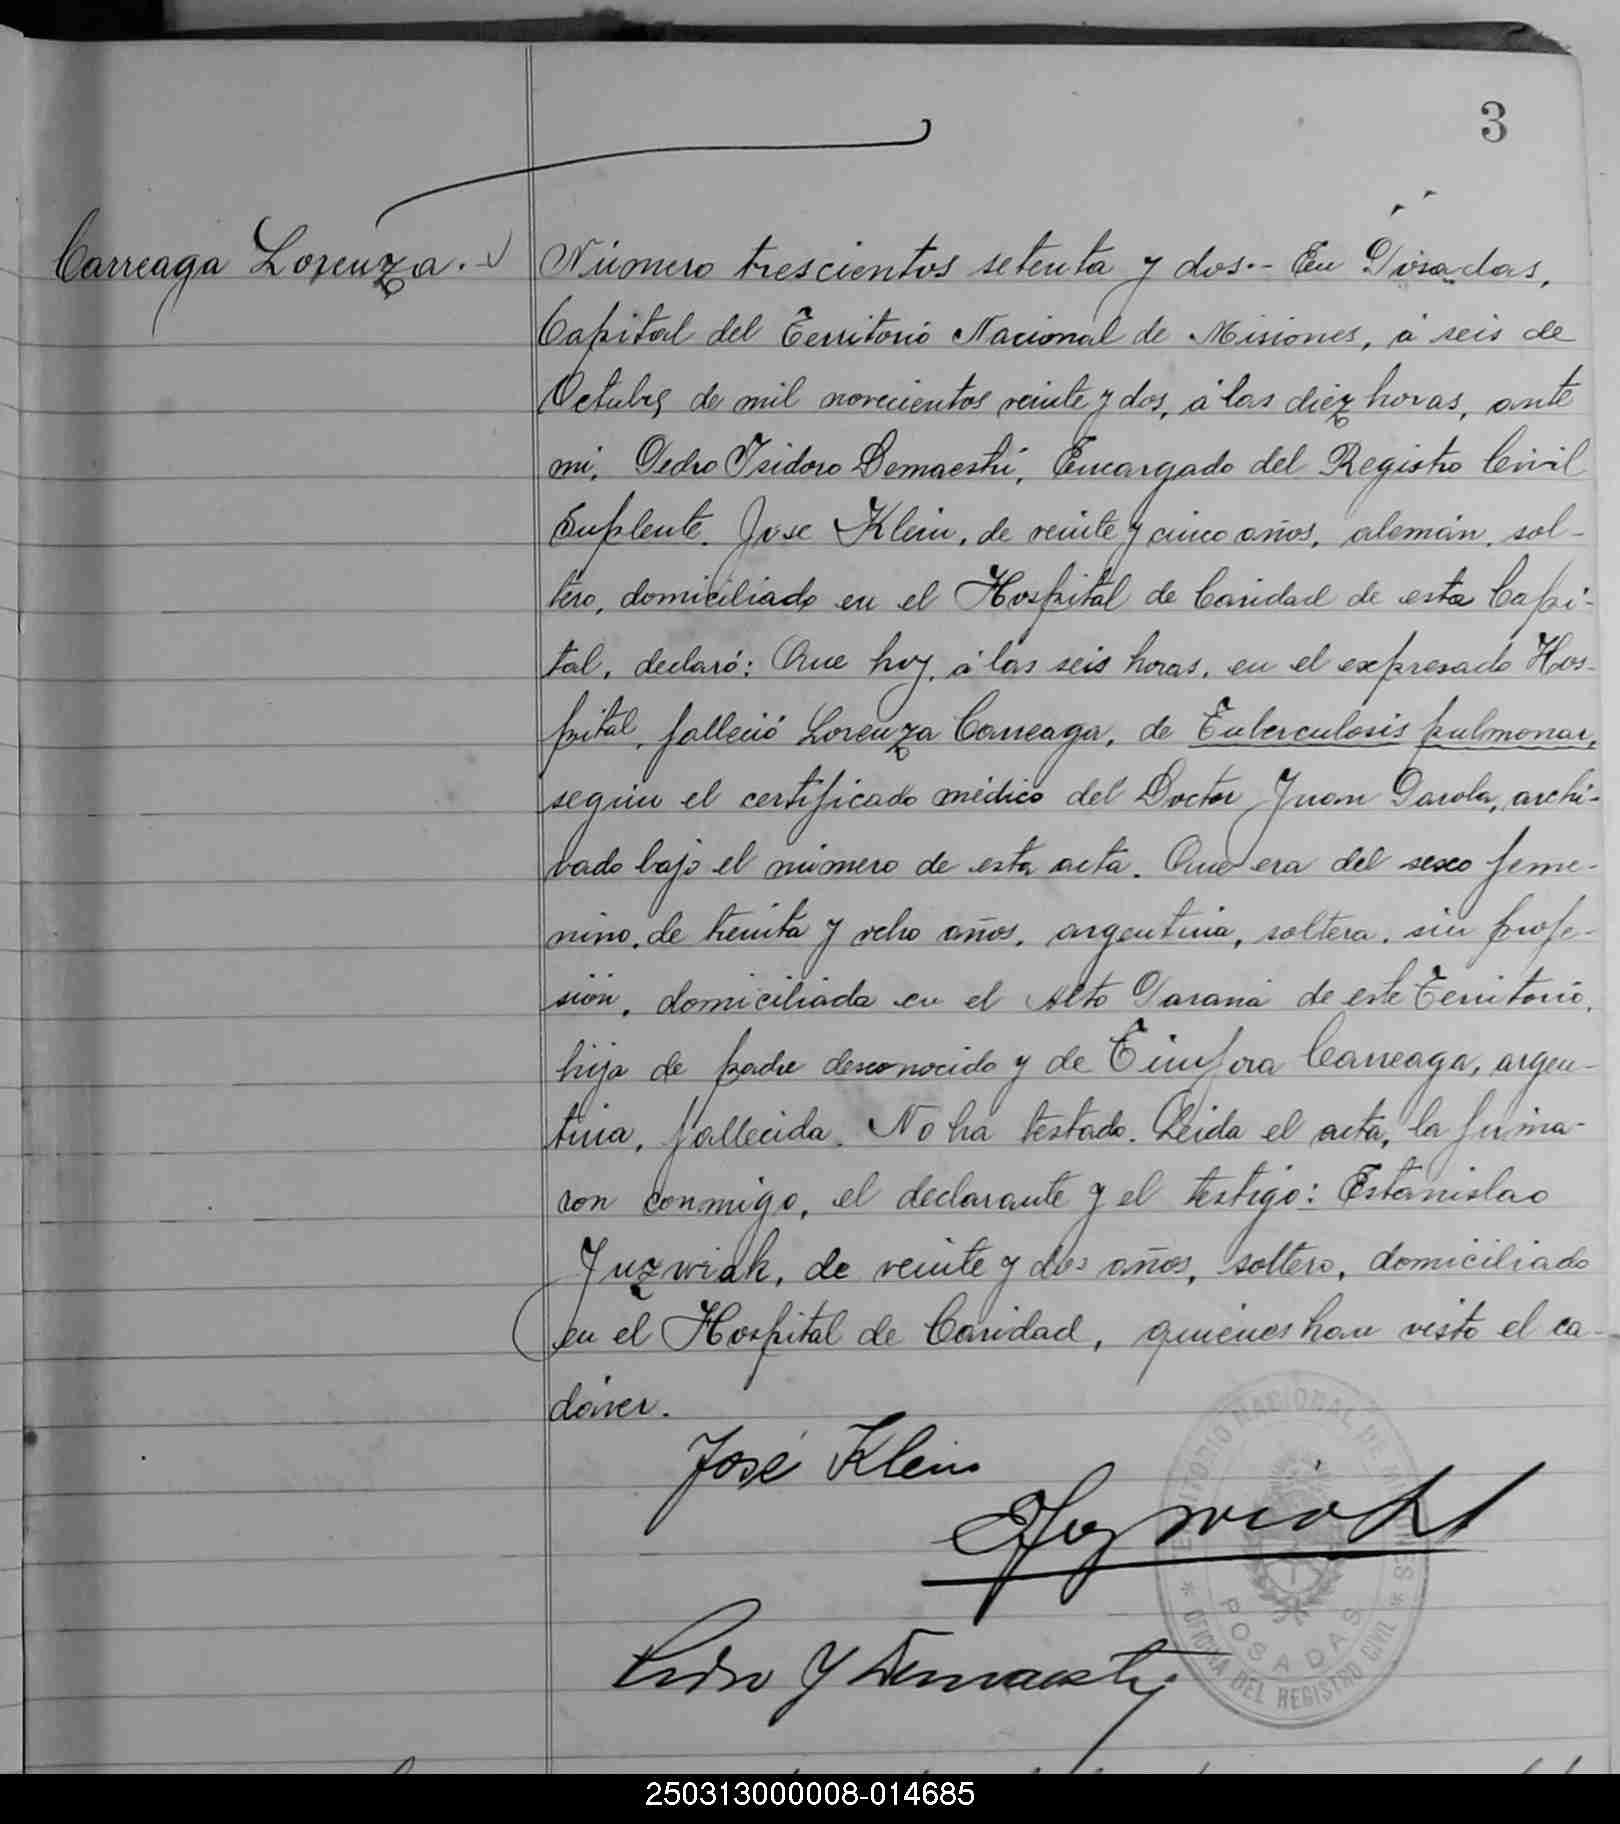 3
Carreaga Lorenza.-
Número trescientos setenta y dos.- En Posadas,
Capital del Territorio Nacional de Misiones, á seis de
Octubre de mil novecientos veinte y dos, á las diez horas, ante
mi, Pedro Isidoro Demaestri, Encargado del Registro Civil
Suplente. Jose Klein, de veinte y cinco años, alemán, sol-
tero, domiciliado en el Hospital de Caridad de esta Capi-
tal, declaró: Que hoy, á las seis horas, en el expresado Hos-
pital, falleció Lorenza Carreaga, de Tuberculosis pulmonar,
según el certificado médico del Doctor Juan Parola, archi-
vado bajo el número de esta acta. Que era del sexo feme-
nino, de treinta y ocho años, argentina, soltera, sin profe-
sión, domiciliada en el Alto Paraná de este Territorio,
hija de padre desconocido y de Carreaga, argen-
tina, fallecida. No ha testado. Leida el acta, la firma-
ron conmigo, el declarante y el testigo: Estanislao
Juzwiak, de veinte y dos años, soltero, domiciliado
en el Hospital de Caridad, quienes han visto el ca-
dáver.
José Klein
EJuzwiak
Pedro Y Demaestri
TERRITORIO NACIONAL DE MISIONES
POSADAS
* OFICINA DEL REGISTRO CIVIL *
250313000008-014685